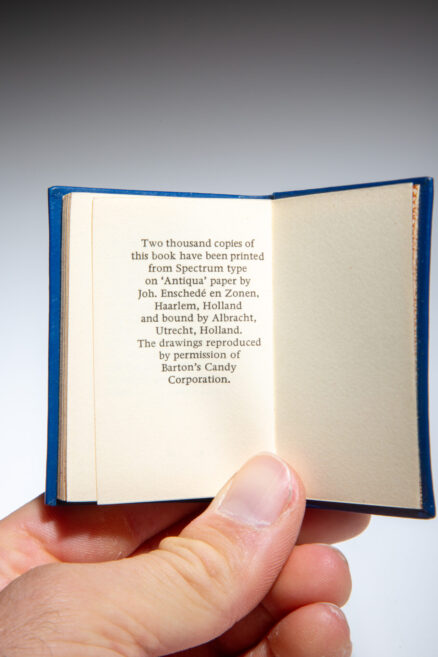 Two thousand copies of
this book have been printed
from Spectrum type
on ‘Antiqua’ paper by
Joh. Enschedé en Zonen,
Haarlem, Holland
and bound by Albracht,
Utrecht, Holland.
The drawings reproduced
by permission of
Barton’s Candy
Corporation.